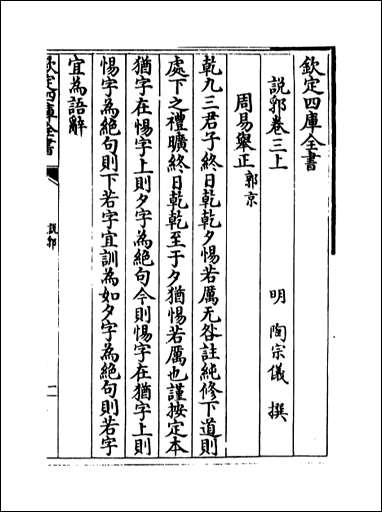 欽定四庫全書
說郛卷三上
明 陶宗儀 撰
周易舉正 郭京
乾九三君子終日乾乾夕惕若厲无咎註純修下道則
處下之禮曠終日乾乾至于夕猶惕若厲也謹按定本
猶字在惕字上則夕字為絕句今則惕字在猶字上則
惕字為絕句則下若字宜訓為如夕字為絕句則若字
宜為語辭
欽定四庫全書
說郛